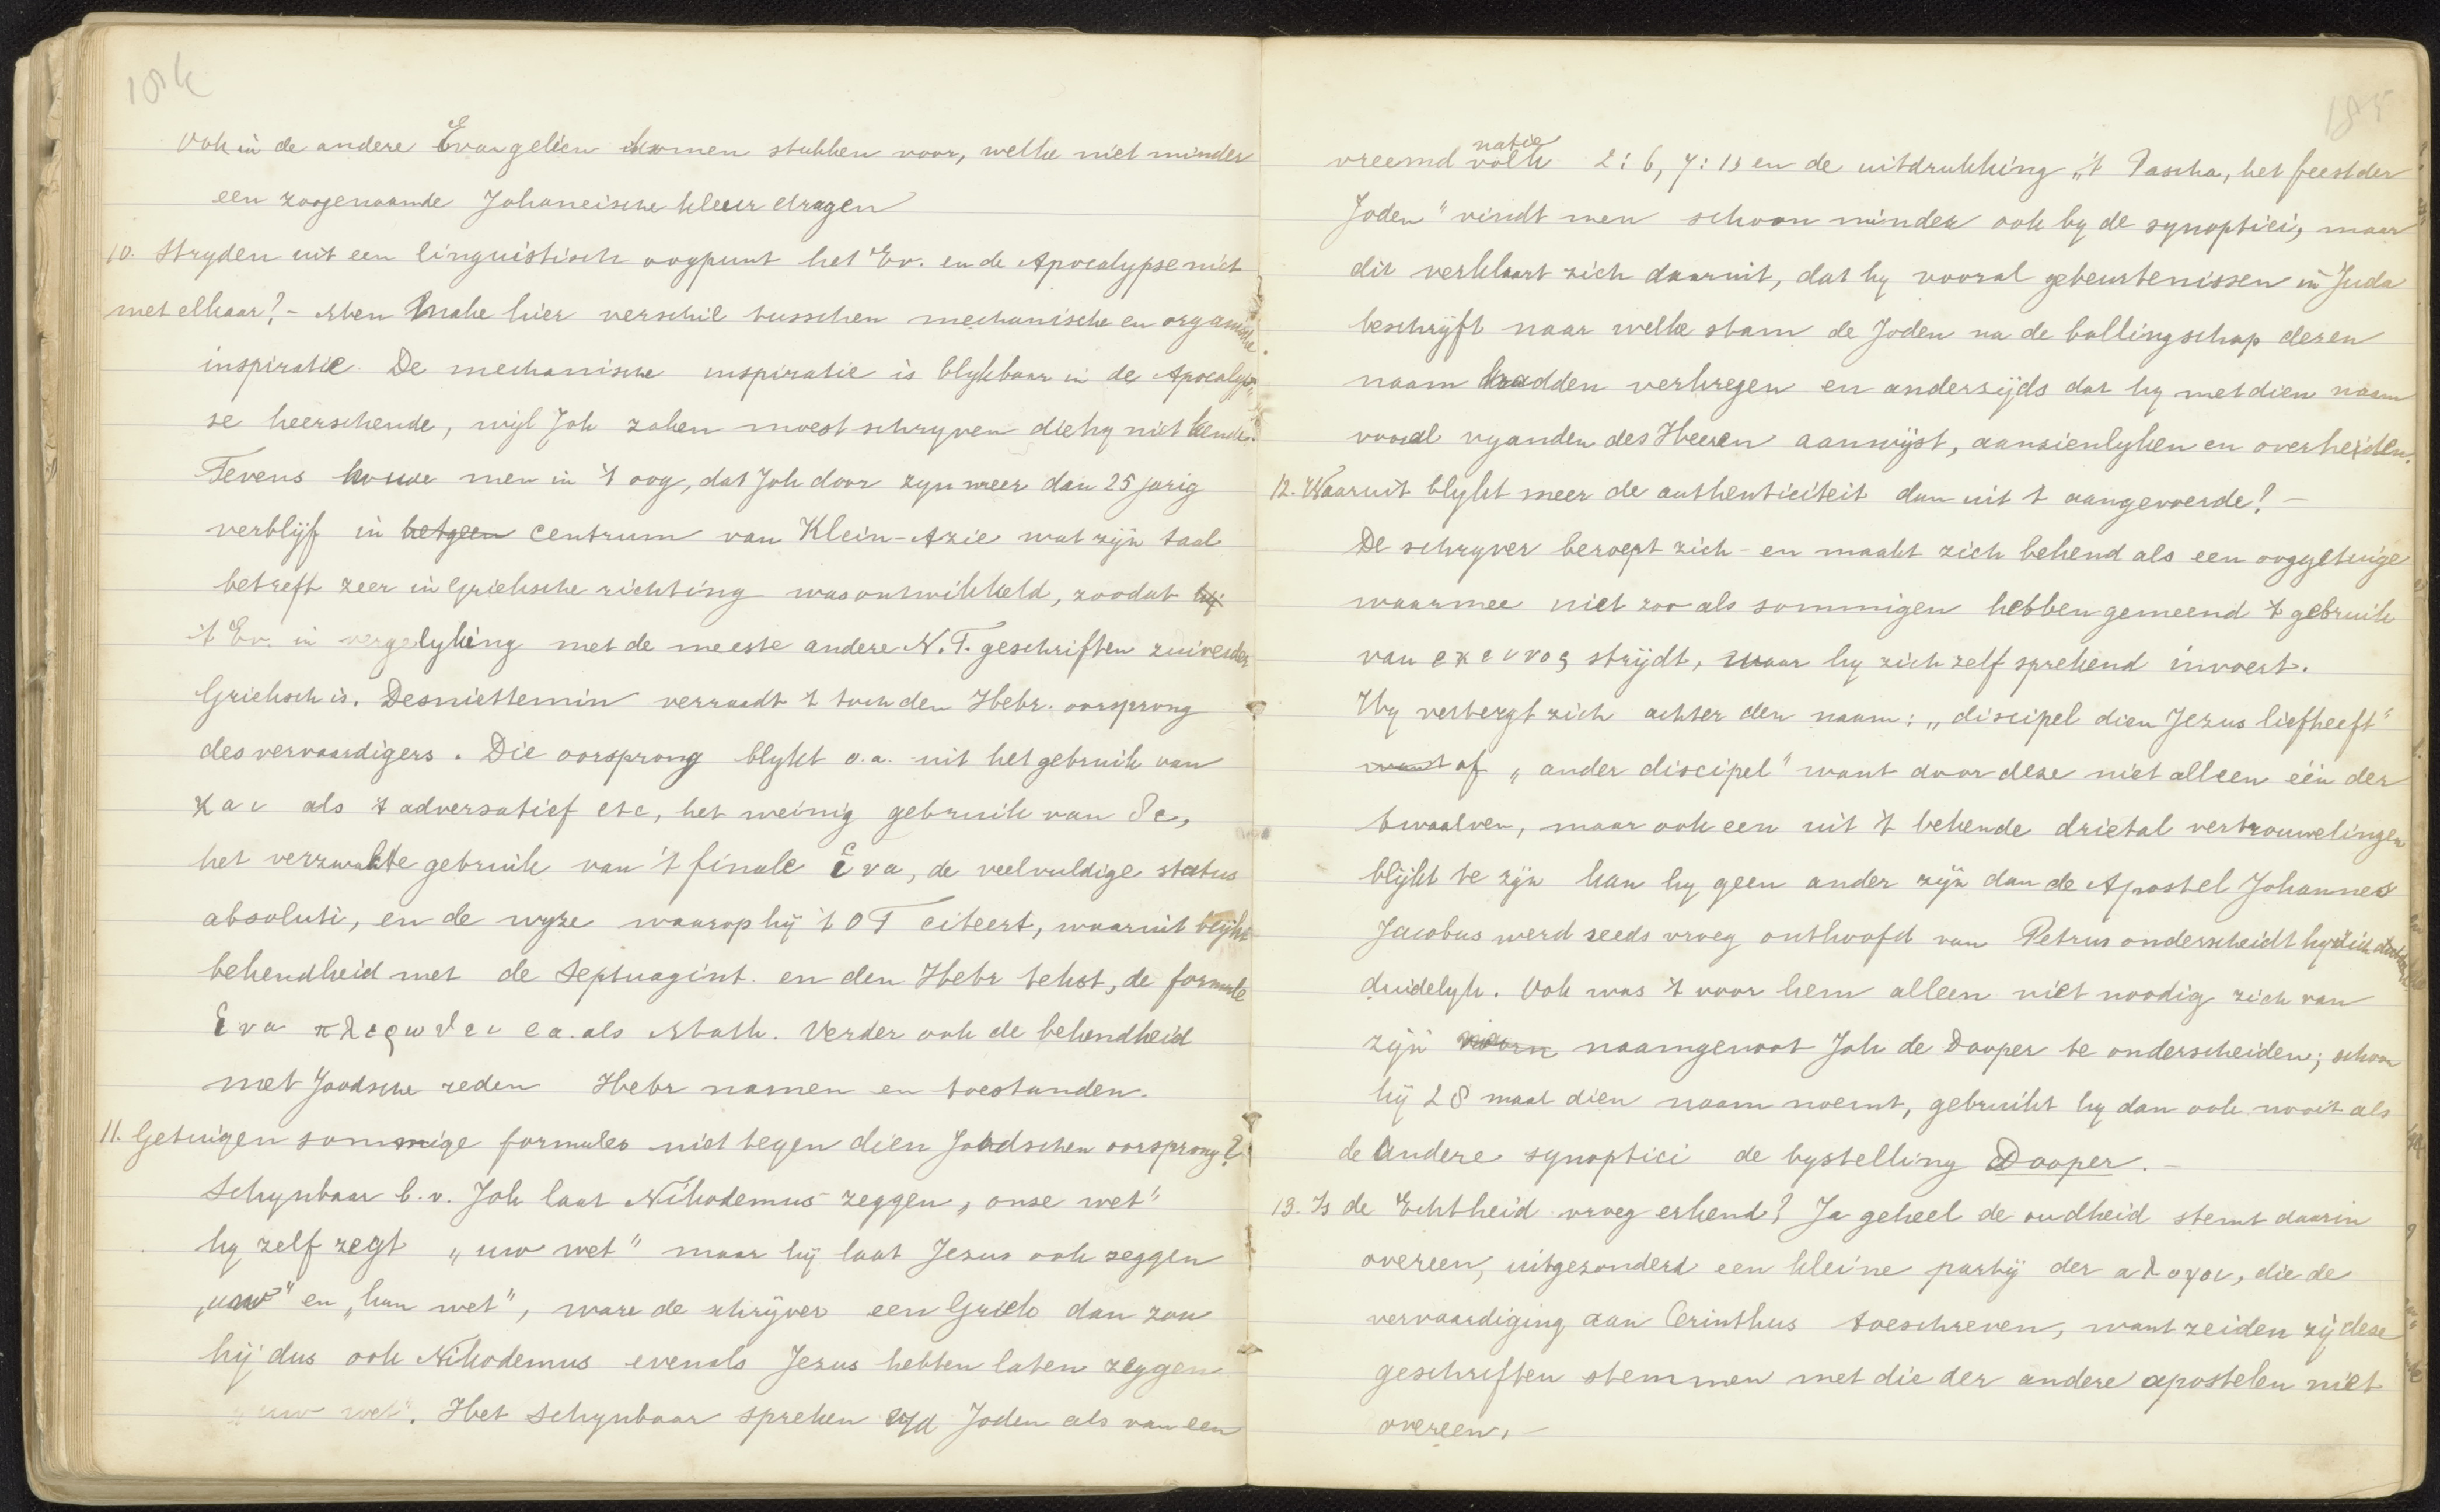 184
Ook in de andere Evangelien komen stukken voor, welke niet minder
een zoogenaamde Johaneische kleur dragen
10. Stryden uit een linguistisch oogpunt het Ev. en de Apocalypse niet
met elkaar? - Men make hier verschil tusschen mechanische en organische
inspiratie. De mechanische inspiratie is blykbaar in de Apocalyp-
se heerschende, wijl Joh zaken moest schryven die hy niet kende.
Tevens houde men in 't oog, dat Joh door zyn meer dan 25 jarig
verblijf in hetgeen centrum van Klein-Azie wat zijn taal
betreft zeer in Grieksche richting was ontwikkeld, zoodat hij
't Ev. in vergelyking met de meeste andere N.T. geschriften zuiverder
Grieksch is. Desniettemin verraadt 't toch den Hebr. oorsprong
des vervaardigers. Die oorsprong blykt o.a. uit het gebruik van
και als 't adversatief etc, het weinig gebruik van δε,
het verzwakte gebruik van 't finale ἱνα, de veelvuldige status
absoluti, en de wyze waarop hij 't O T citeert, waaruit blijkt
bekendheid met de Septuagint en den Hebr tekst, de formule
ἱνα πλερωθει ea. als Math. Verder ook de bekendheid
met Joodsche zeden Hebr namen en toestanden.
11. Getuigen sommige formules niet tegen dien Joodschen oorsprong?
Schynbaar b.v. Joh laat Nikodemus zeggen „onse wet"
hy zelf zegt „uw wet" maar hij laat Jezus ook zeggen
„uw" en „hun wet", ware de schrijver een Griek dan zou
hij dus ook Nikodemus evenals Jezus hebben laten zeggen
„uw wet". Het schynbaar spreken v/d Joden als van een
185
natie
vreemd volk 2:6, 7:13 en de uitdrukking „'t Pascha, het feest der
Joden" vindt men schoon minder ook by de synoptici, maar
dit verklaart zich daaruit, dat hy vooral gebeurtenissen in Juda
beschrijft naar welke stam de Joden na de ballingschap deren
naam hadden verkregen en anderzijds dat hy met dien naam
vooral vyanden des Heeren aanwijst, aanzienlyken en overheiden.
12. Waaruit blykt meer de authenticiteit dan uit 't aangevoerde? -
De schryver beroept zich - en maakt zich bekend als een ooggetuige
waarmee niet zooals sommigen hebben gemeend 't gebruik
van εκεινος strijdt, waar hy zich zelf sprekend invoert.
Hy verbergt zich achter den naam: „discipel dien Jezus liefheeft"
want of „ander discipel" want daar deze niet alleen één der
twaalven, maar ook een uit 't bekende drietal vertrouwelingen
blijkt te zijn kan hy geen ander zijn dan de Apostel Johannes
Jacobus werd reeds vroeg onthoofd van Petrus onderscheidt hy zich
duidelyk. Ook was 't voor hem alleen niet noodig zich van
zijn naamgenoot Joh de Dooper te onderscheiden; schoon
hij 28 maal dien naam noemt, gebruikt hy dan ook nooit als
de andere synoptici de bystelling Dooper. -
13. Is de Echtheid vroeg erkend? Ja geheel de oudheid stemt daarin
overeen, uitgezonderd een kleine partij der αλογοι, die de
vervaardiging aan Cerinthus toeschreven, want zeiden zij deze
geschriften stemmen met die der andere apostelen niet
overeen. -